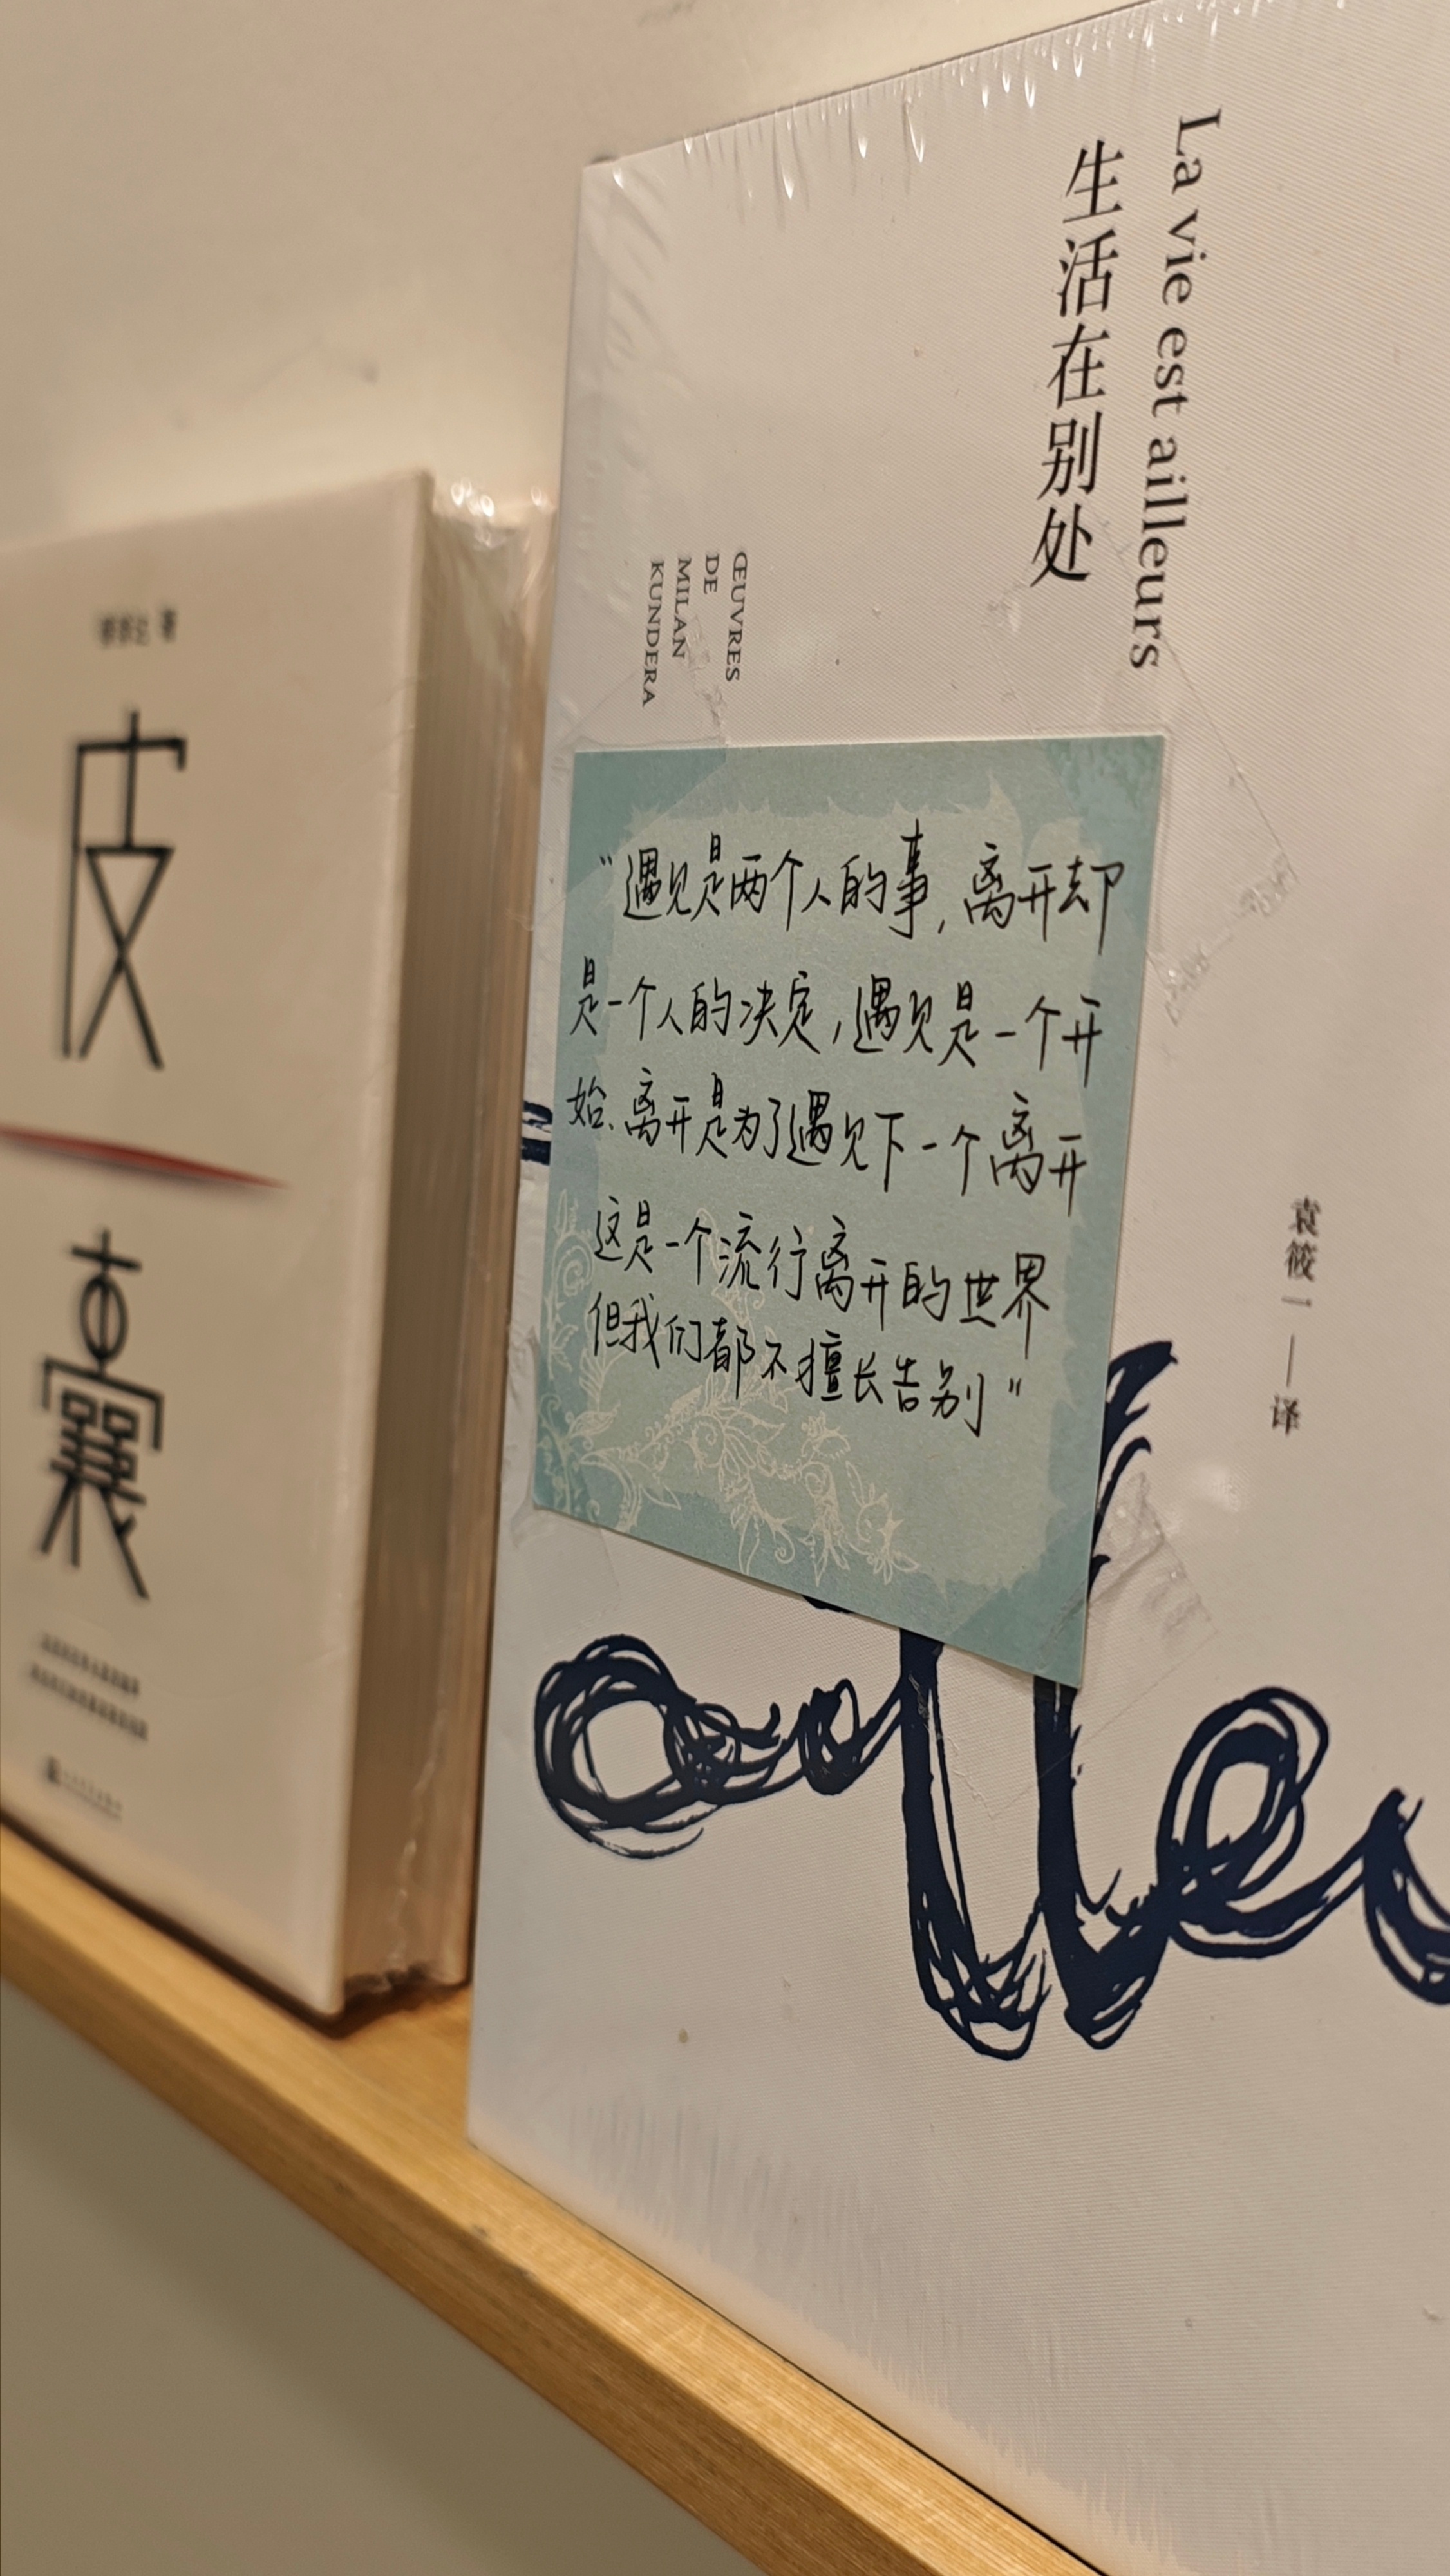 皮
囊
La vie est ailleurs
生活在别处
ŒUVRES
DE
MILAN
KUNDERA
“遇见是两个人的事,离开却
是一个人的决定,遇见是一个开
始、离开是为了遇见下一个离开
这是一个流行离开的世界
但我们都不擅长告别”
袁筱一—译